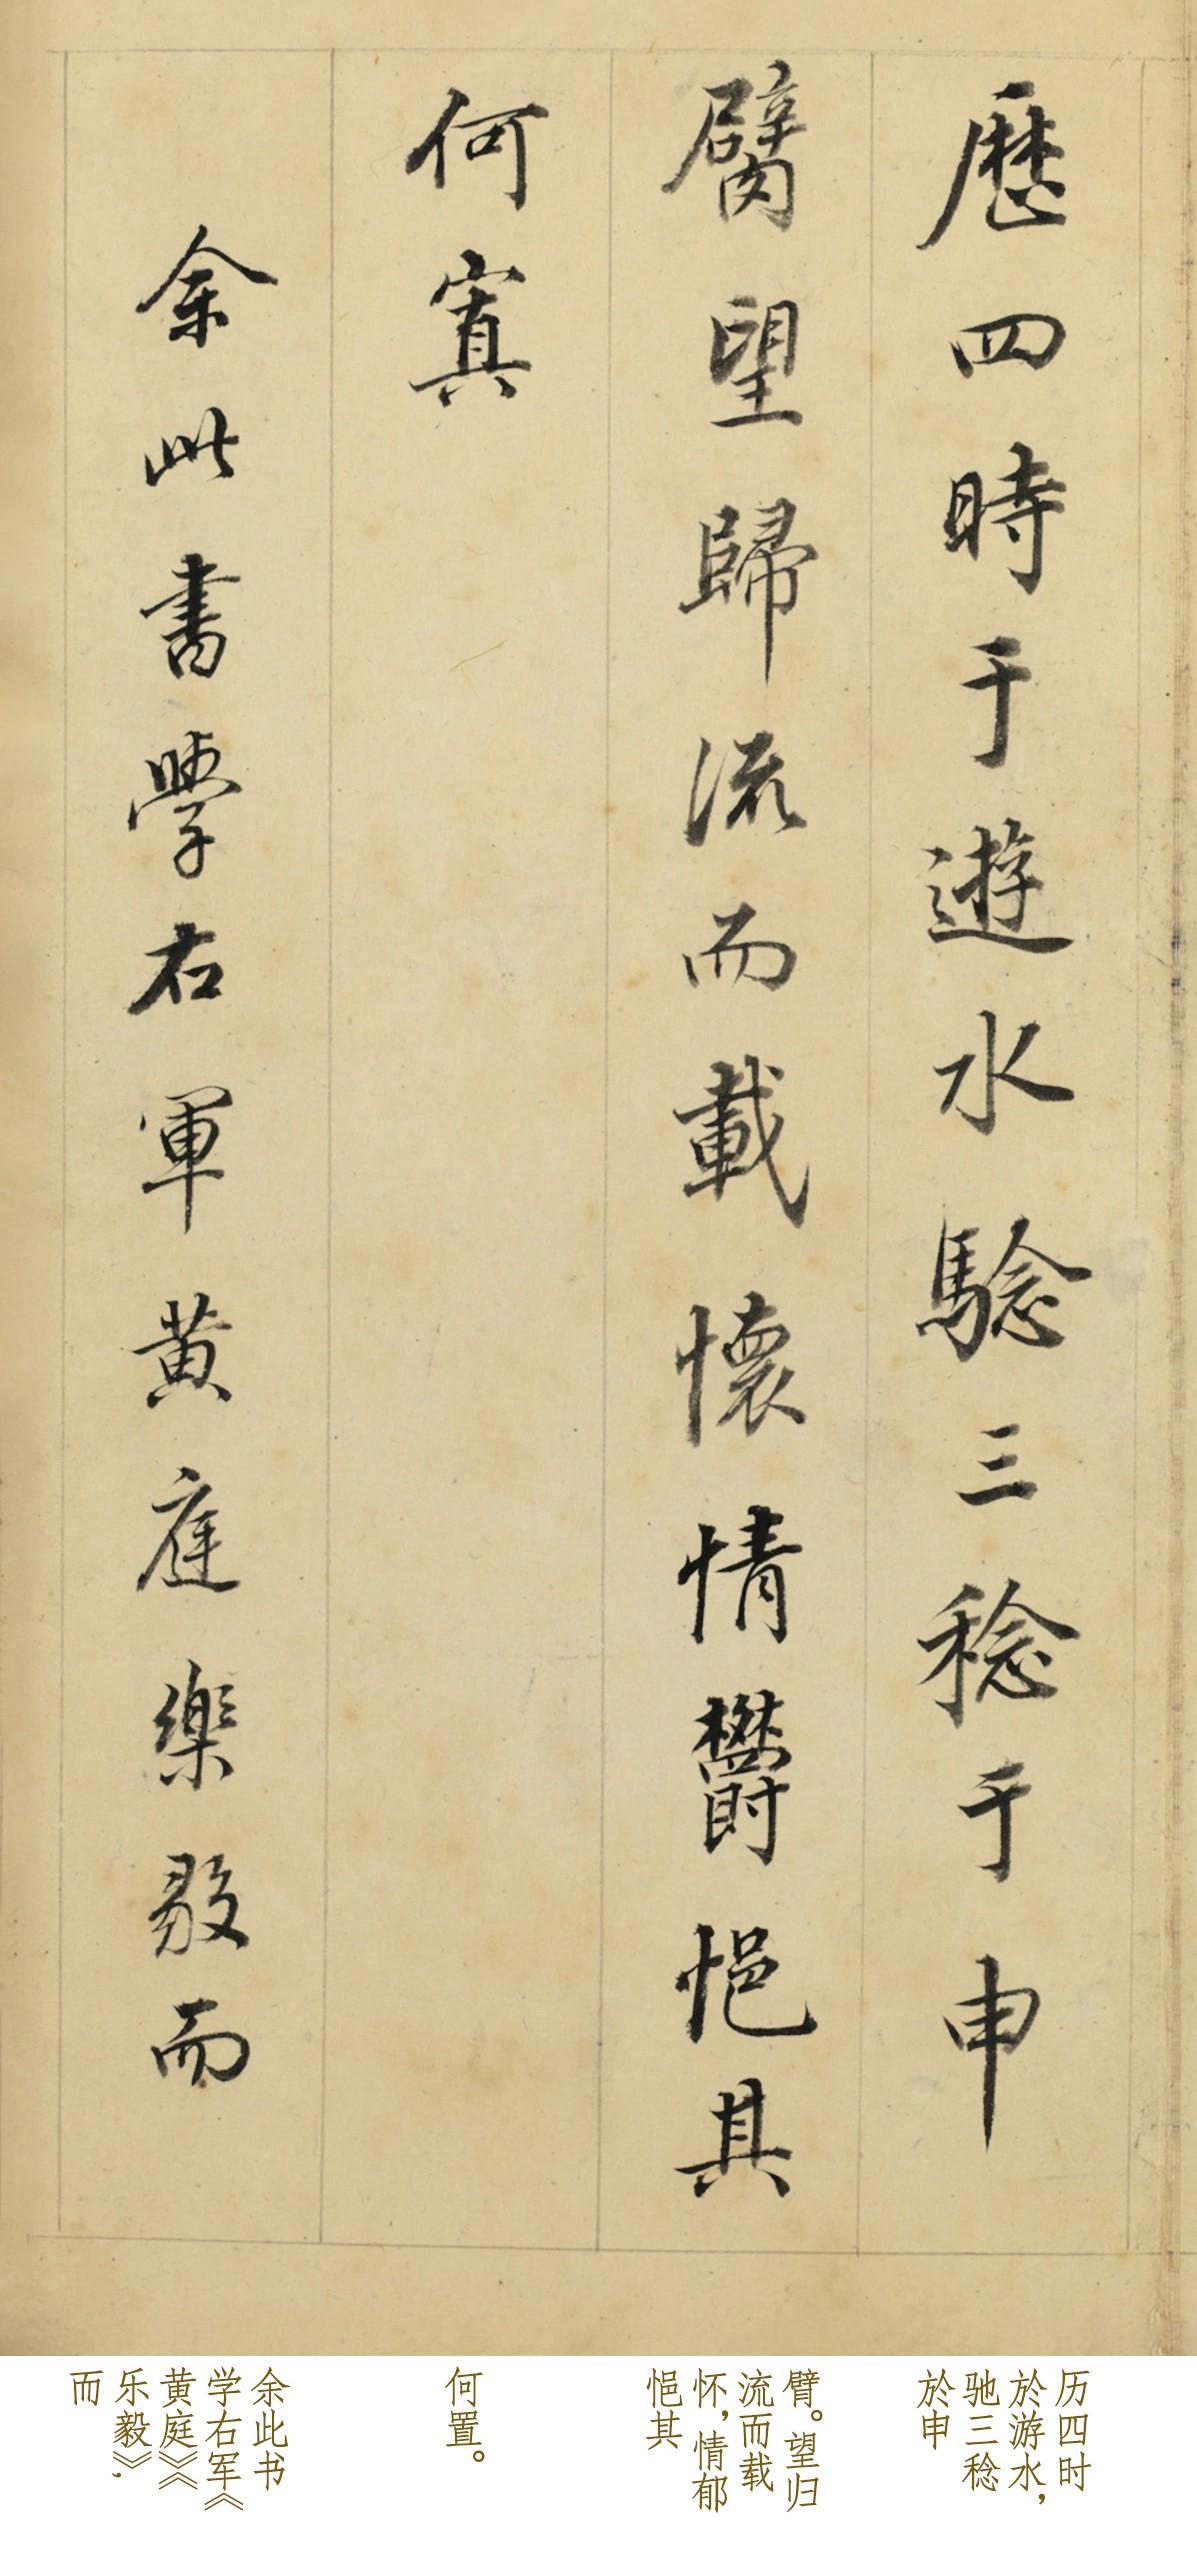 歷四時于遊水騐三稔于申
臂望歸流而載懷情欝悒其
何寘
余此書學右軍黄庭樂毅而
历四时
於游水，
驰三稔
於申
臂。望归
流而载
怀，情郁
悒其
何置。
余此书
学右军《
黄庭》《
乐毅》，
而